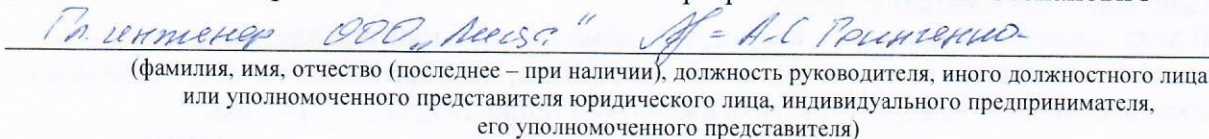 Гл. инженер ООО „ А.С. Гринченко
(фамилия, имя, отчество (последнее – при наличии), должность руководителя, иного должностного лица
или уполномоченного представителя юридического лица, индивидуального предпринимателя,
его уполномоченного представителя)